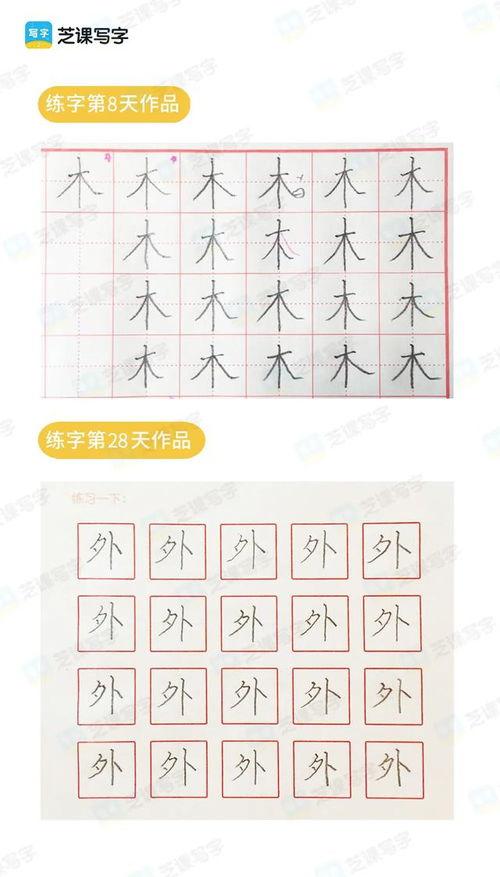 写字 芝课写字
练字第8天作品
木 木 木 木 木 木
木 木 木 木 木
木 木 木 木 木
木 木 木 木 木
练字第28天作品
练习一下:
外 外 外 外 外
外 外 外 外 外
外 外 外 外 外
外 外 外 外 外